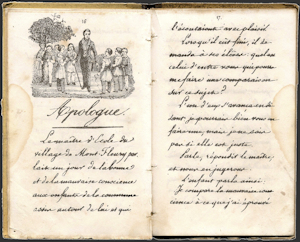 16
Apologue
Le maître d'Ecole du
village de Mont Fleury par
lait un jour de la bonne
et de la mauvaise conscience
aux enfants de la commune
assis autour de lui et qui
17
l'écoutaient avec plaisir.
Lorsqu'il eût fini, il de-
manda à ses élèves: quel est
celui d'entre vous qui pourra
me faire une comparaison
sur ce sujet?
L'un d'eux s'avança en di-
sant, je pourrais bien vous en
faire une, mais je ne sais
pas si elle est juste.
Parle, répondit le maître,
et nous en jugerons.
L'enfant parla ainsi
Je compare la mauvaise cons-
cience à ce que j'ai éprouvé